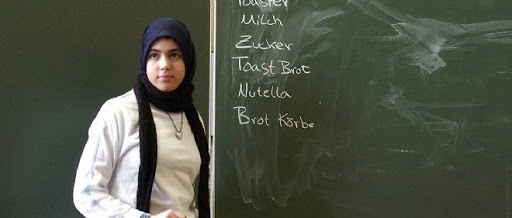 Toaster
Milch
Zucker
Toast Brot
Nutella
Brot Körbe